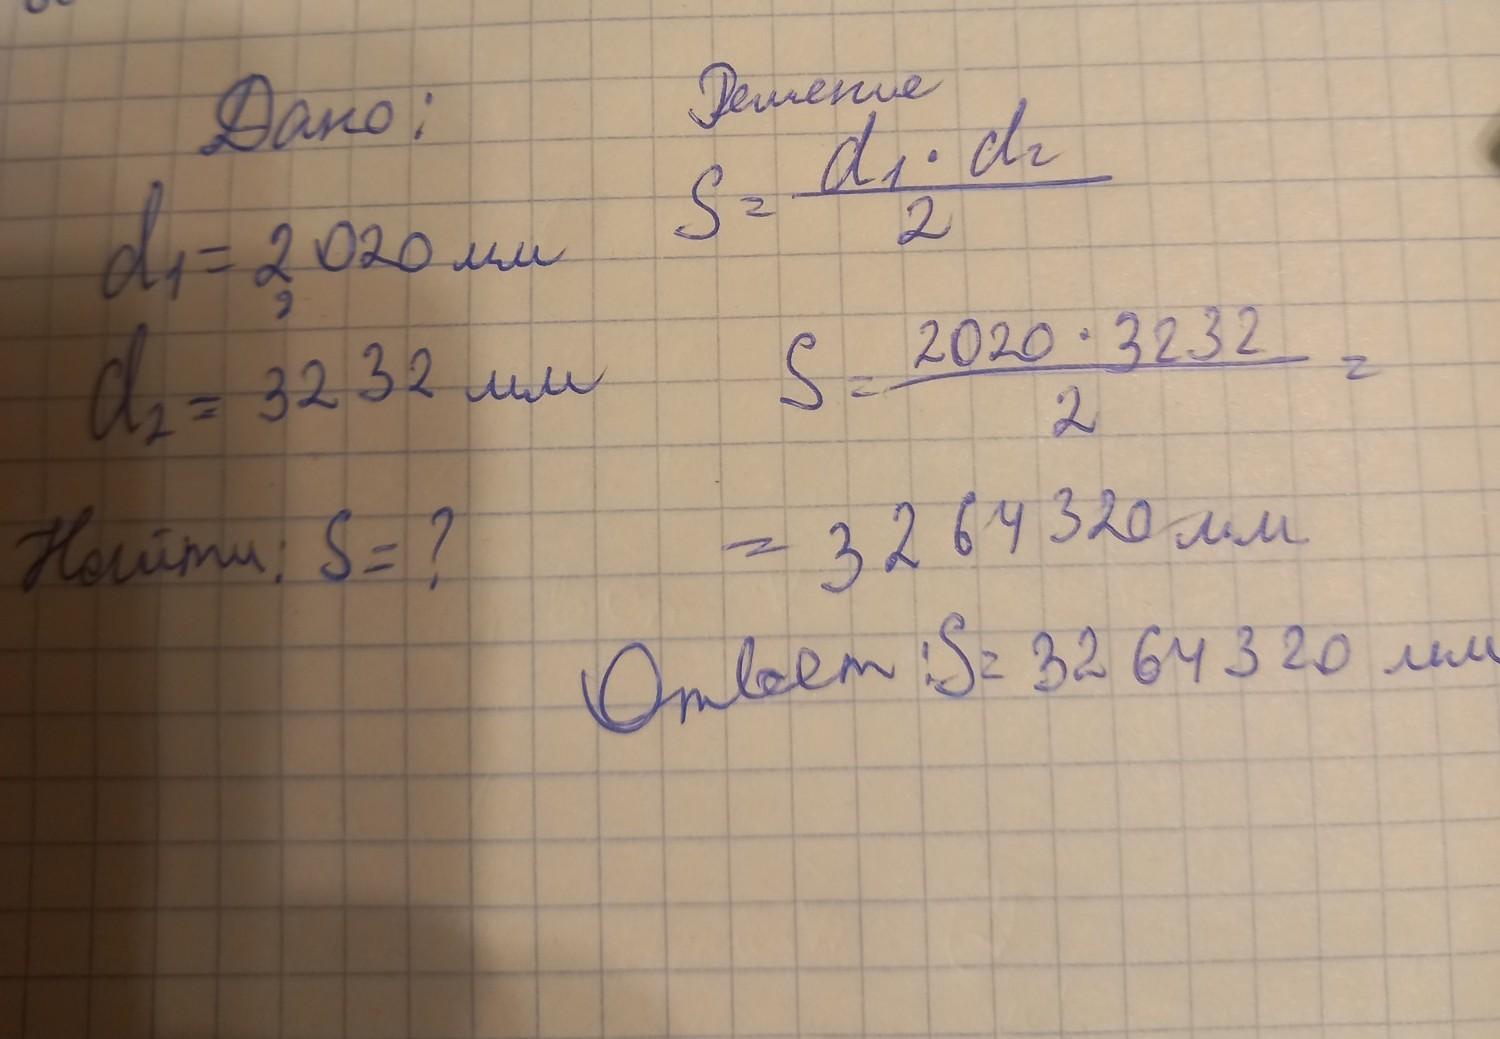 Дано:
d₁ = 2020 мм
d₂ = 3232 мм
Найти: S = ?
Решение
S = d₁ · d₂ / 2
S = 2020 · 3232 / 2 =
= 3264320 мм
Ответ: S = 3264320 мм